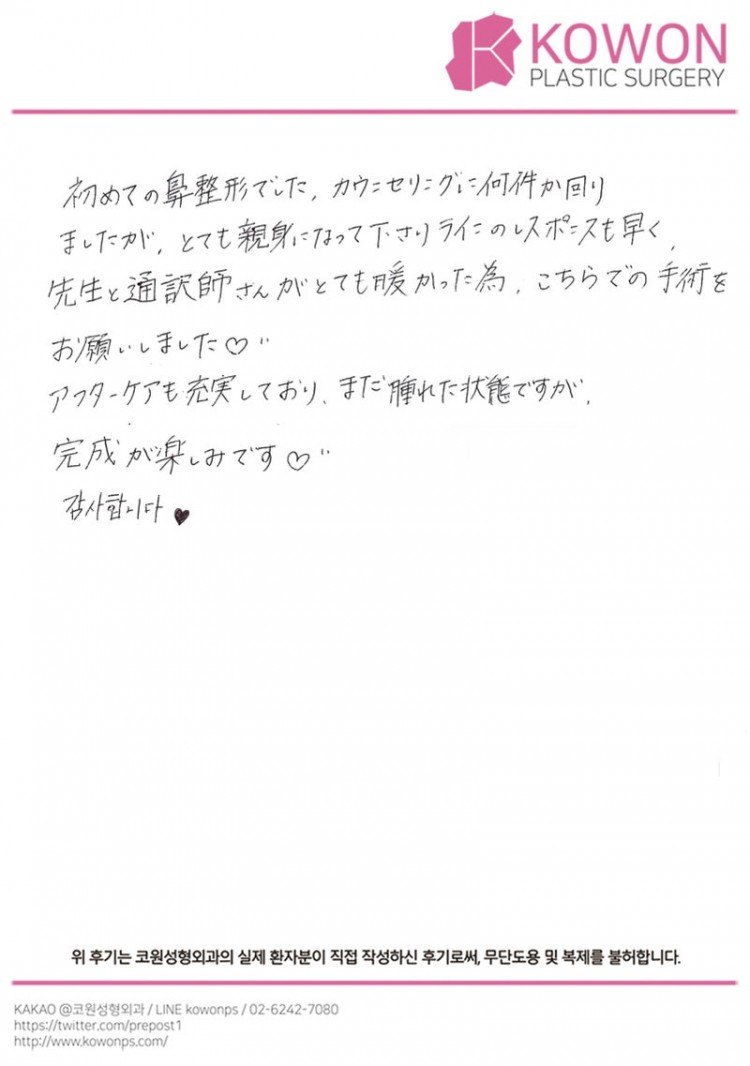 KOWON
PLASTIC SURGERY
初めての鼻整形でした。カウンセリングに何件か回り
ましたが、とても親身になって下さりラインのレスポンスも早く、
先生と通訳師さんがとても暖かった為、こちらでの手術を
お願いしました♡
アフターケアも充実しており、まだ腫れた状態ですが、
完成が楽しみです♡
감사합니다 ♥
위 후기는 코원성형외과의 실제 환자분이 직접 작성하신 후기로써, 무단도용 및 복제를 불허합니다.
KAKAO @코원성형외과 / LINE kowonps / 02-6242-7080
https://twitter.com/prepost1
http://www.kowonps.com/